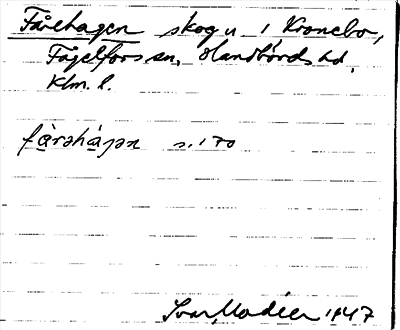 Fårehagen skog u. 1 Kronebo,
Fågelfors sn, Handbörds hd,
Klm. l.
fàrəhàgən s. 170
Ivar Modéer 1947